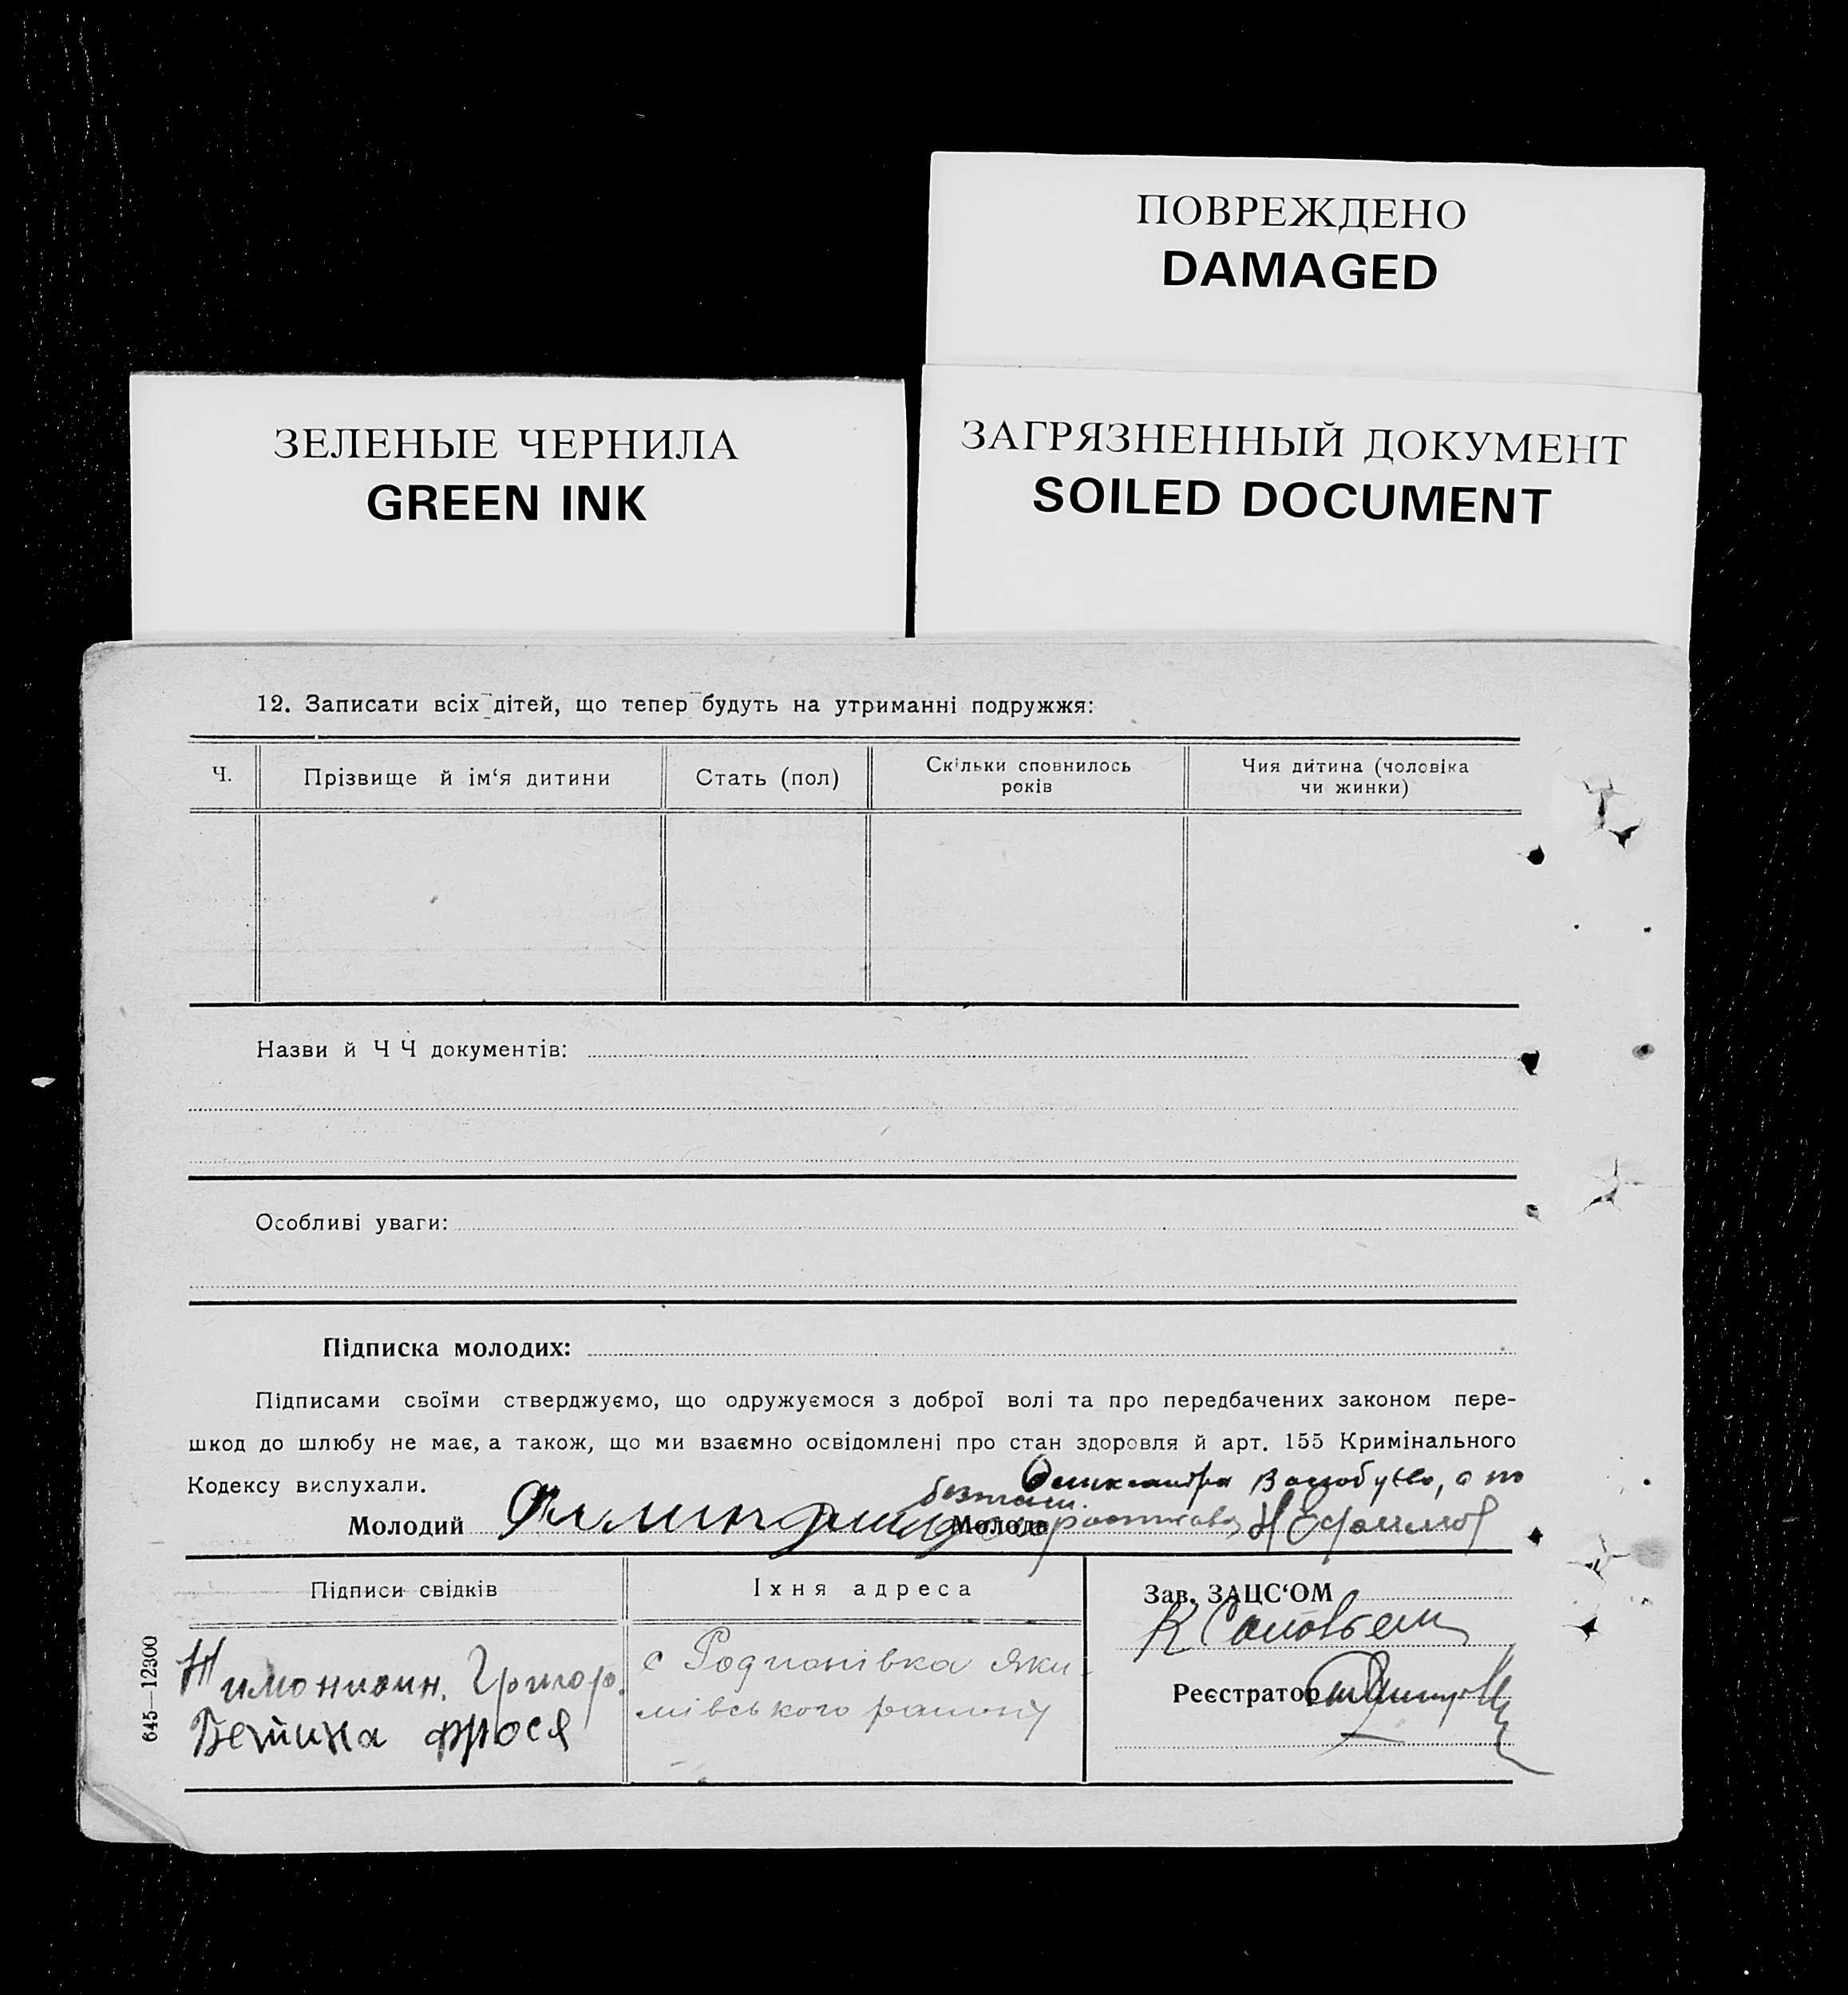 ПОВРЕЖДЕНО
DAMAGED
ЗЕЛЕНЫЕ ЧЕРНИЛА
GREEN INK
ЗАГРЯЗНЕННЫЙ ДОКУМЕНТ
SOILED DOCUMENT
12. Записати всіх дітей, що тепер будуть на утриманні подружжя:
Ч.
Прізвище й ім‘я дитини
Стать (пол)
Скільки сповнилось
років
Чия дитина (чоловіка
чи жинки)
Назви й Ч Ч документів:
Особливі уваги:
Підписка молодих:
Підписами своїми стверджуємо, що одружуємося з доброї волі та про передбачених законом пере-
шкод до шлюбу не має, а також, що ми взаємно освідомлені про стан здоровля й арт. 155 Кримінального
Кодексу вислухали.
Молодий
Молода
Підписи свідків
Їхня адреса
Зав. ЗАЦС‘ОМ
Григор.
Фрося
с Родионівка Яки-
мівського району
К Соловьем
Реєстратор
645—12300